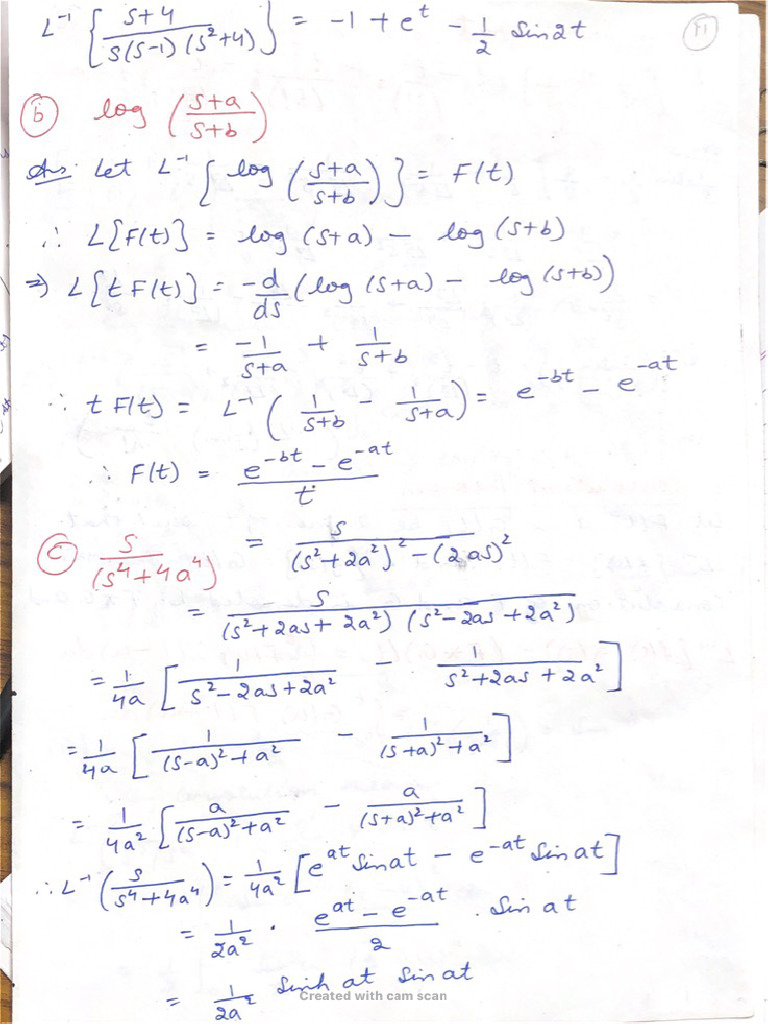 L⁻¹ { s+4 / s(s-1)(s²+4) } = -1 + eᵗ - 1/2 Sin2t
(b) log ( s+a / s+b )
Ans: Let L⁻¹ { log ( s+a / s+b ) } = F(t)
∴ L{F(t)} = log (s+a) - log (s+b)
⇒ L{t F(t)} = -d/ds (log (s+a) - log (s+b))
= -1/s+a + 1/s+b
∴ t F(t) = L⁻¹ ( 1/s+b - 1/s+a ) = e^-bt - e^-at
∴ F(t) = e^-bt - e^-at / t
(c) s / (s⁴+4a⁴) = s / (s²+2a²)² - (2as)²
= s / (s²+2as+2a²) (s²-2as+2a²)
= 1/4a [ 1 / s²-2as+2a² - 1 / s²+2as+2a² ]
= 1/4a [ 1 / (s-a)²+a² - 1 / (s+a)²+a² ]
= 1/4a² [ a / (s-a)²+a² - a / (s+a)²+a² ]
∴ L⁻¹ ( s / s⁴+4a⁴ ) = 1/4a² [ e^at Sin at - e^-at Sin at ]
= 1/2a² · e^at - e^-at / 2 . Sin at
= 1/2a² Sinh at Sin at
Created with cam scan